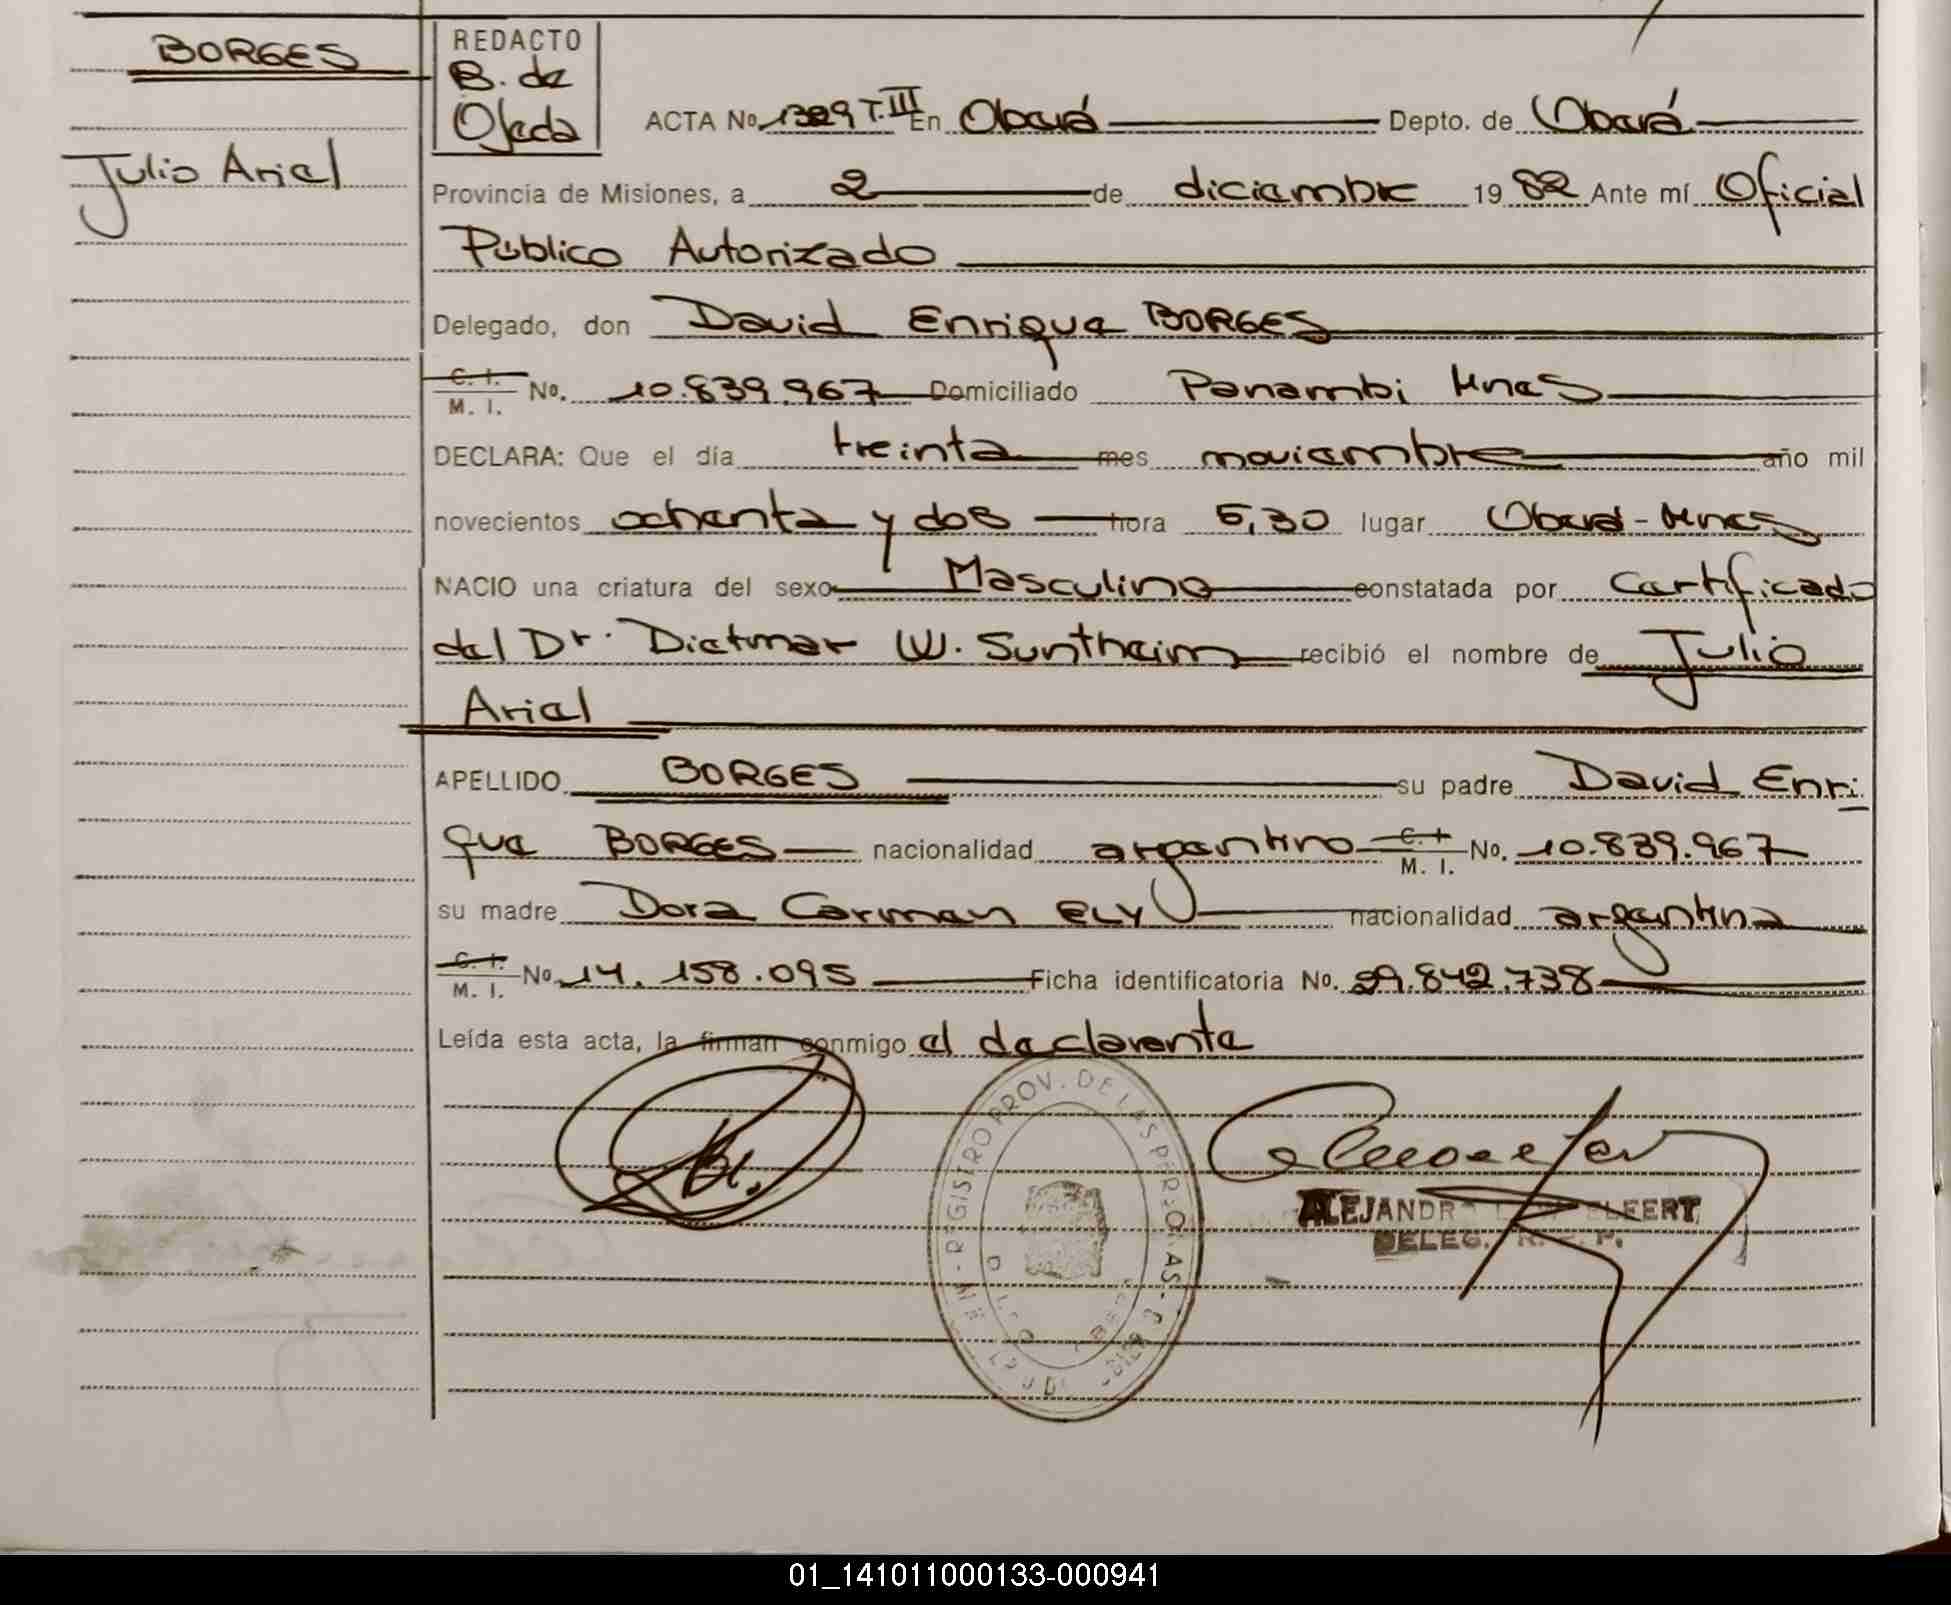 BORGES
Julio Ariel
REDACTO
B. de
Ojeda
ACTA No. 1329 T. III En Oberá Depto. de Oberá
Provincia de Misiones, a 2 de diciembre 19 82 Ante mí Oficial
Público Autorizado
Delegado, don David Enrique BORGES
C. I. M. I. No. 10.839.967 Domiciliado Panambi Mnes
DECLARA: Que el día treinta mes noviembre año mil
novecientos ochenta y dos hora 5,30 lugar Oberá - Mnes
NACIO una criatura del sexo Masculino constatada por Certificado
del Dr. Dietmar W. Suntheim recibió el nombre de Julio
Ariel
APELLIDO BORGES su padre David Enri
que BORGES nacionalidad argentino C. I. M. I. No. 10.839.967
su madre Dora Carmen ELY nacionalidad argentina
C. I. M. I. No. 14.158.095 Ficha identificatoria No. 29.842.738
Leída esta acta, la firman conmigo el declarante
REGISTRO PROV. DE LAS PERSONAS
DELEG.
01_141011000133-000941